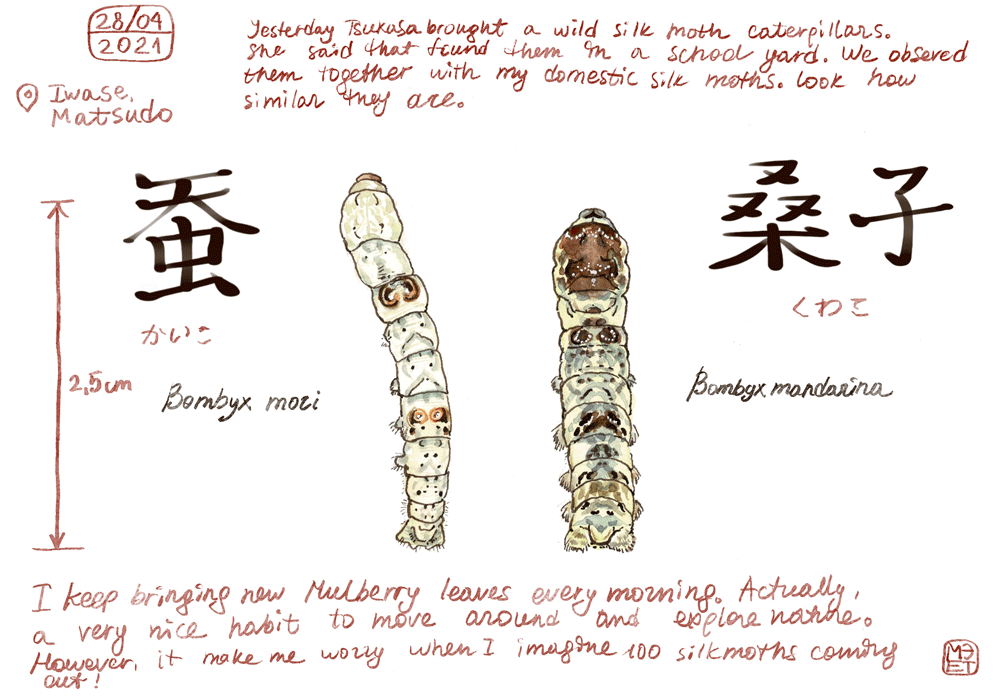 28/04
2021
Yesterday Tsukasa brought a wild silk moth caterpillars.
She said that found them in a school yard. We obsered
them together with my domestic silk moths. look how
similar they are.
Iwase,
Matsudo
蚕
かいこ
桑子
くわこ
2,5cm
Bombyx mori
Bombyx mandarina
I keep bringing new Mulberry leaves every morning. Actually,
a very nice habit to move around and explore nature.
However, it make me worry when I imagine 100 silkmoths coming
out!